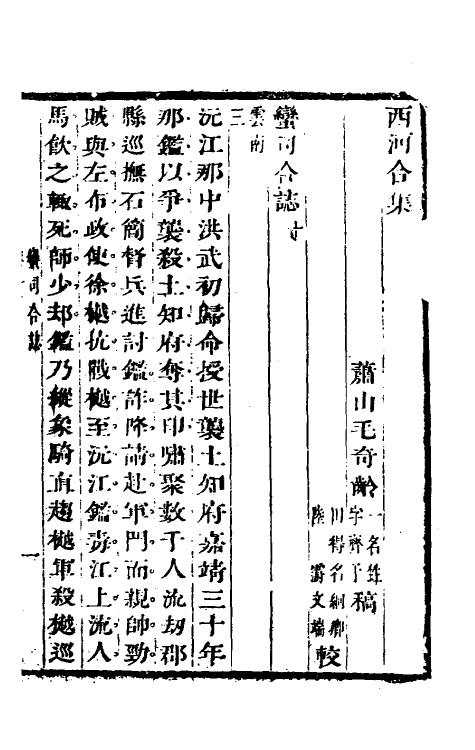 西河合集
蕭山毛奇齡一名甡字齊于稿
川得名綱卿
陸文端較
蠻司合誌十
雲南
三
沅江那中洪武初歸命授世襲土知府嘉靖三十年
那鑑以爭襲殺土知府奪其印嘯聚數千人流劫郡
縣巡撫石簡督兵進討鑑詐降請赴軍門而親帥勁
賊與左布政使徐樾抗戰樾至沅江鑑毒江上流人
馬飲之輙死師少却鑑乃縱象騎直趨樾軍殺樾巡
蠻司合誌
一